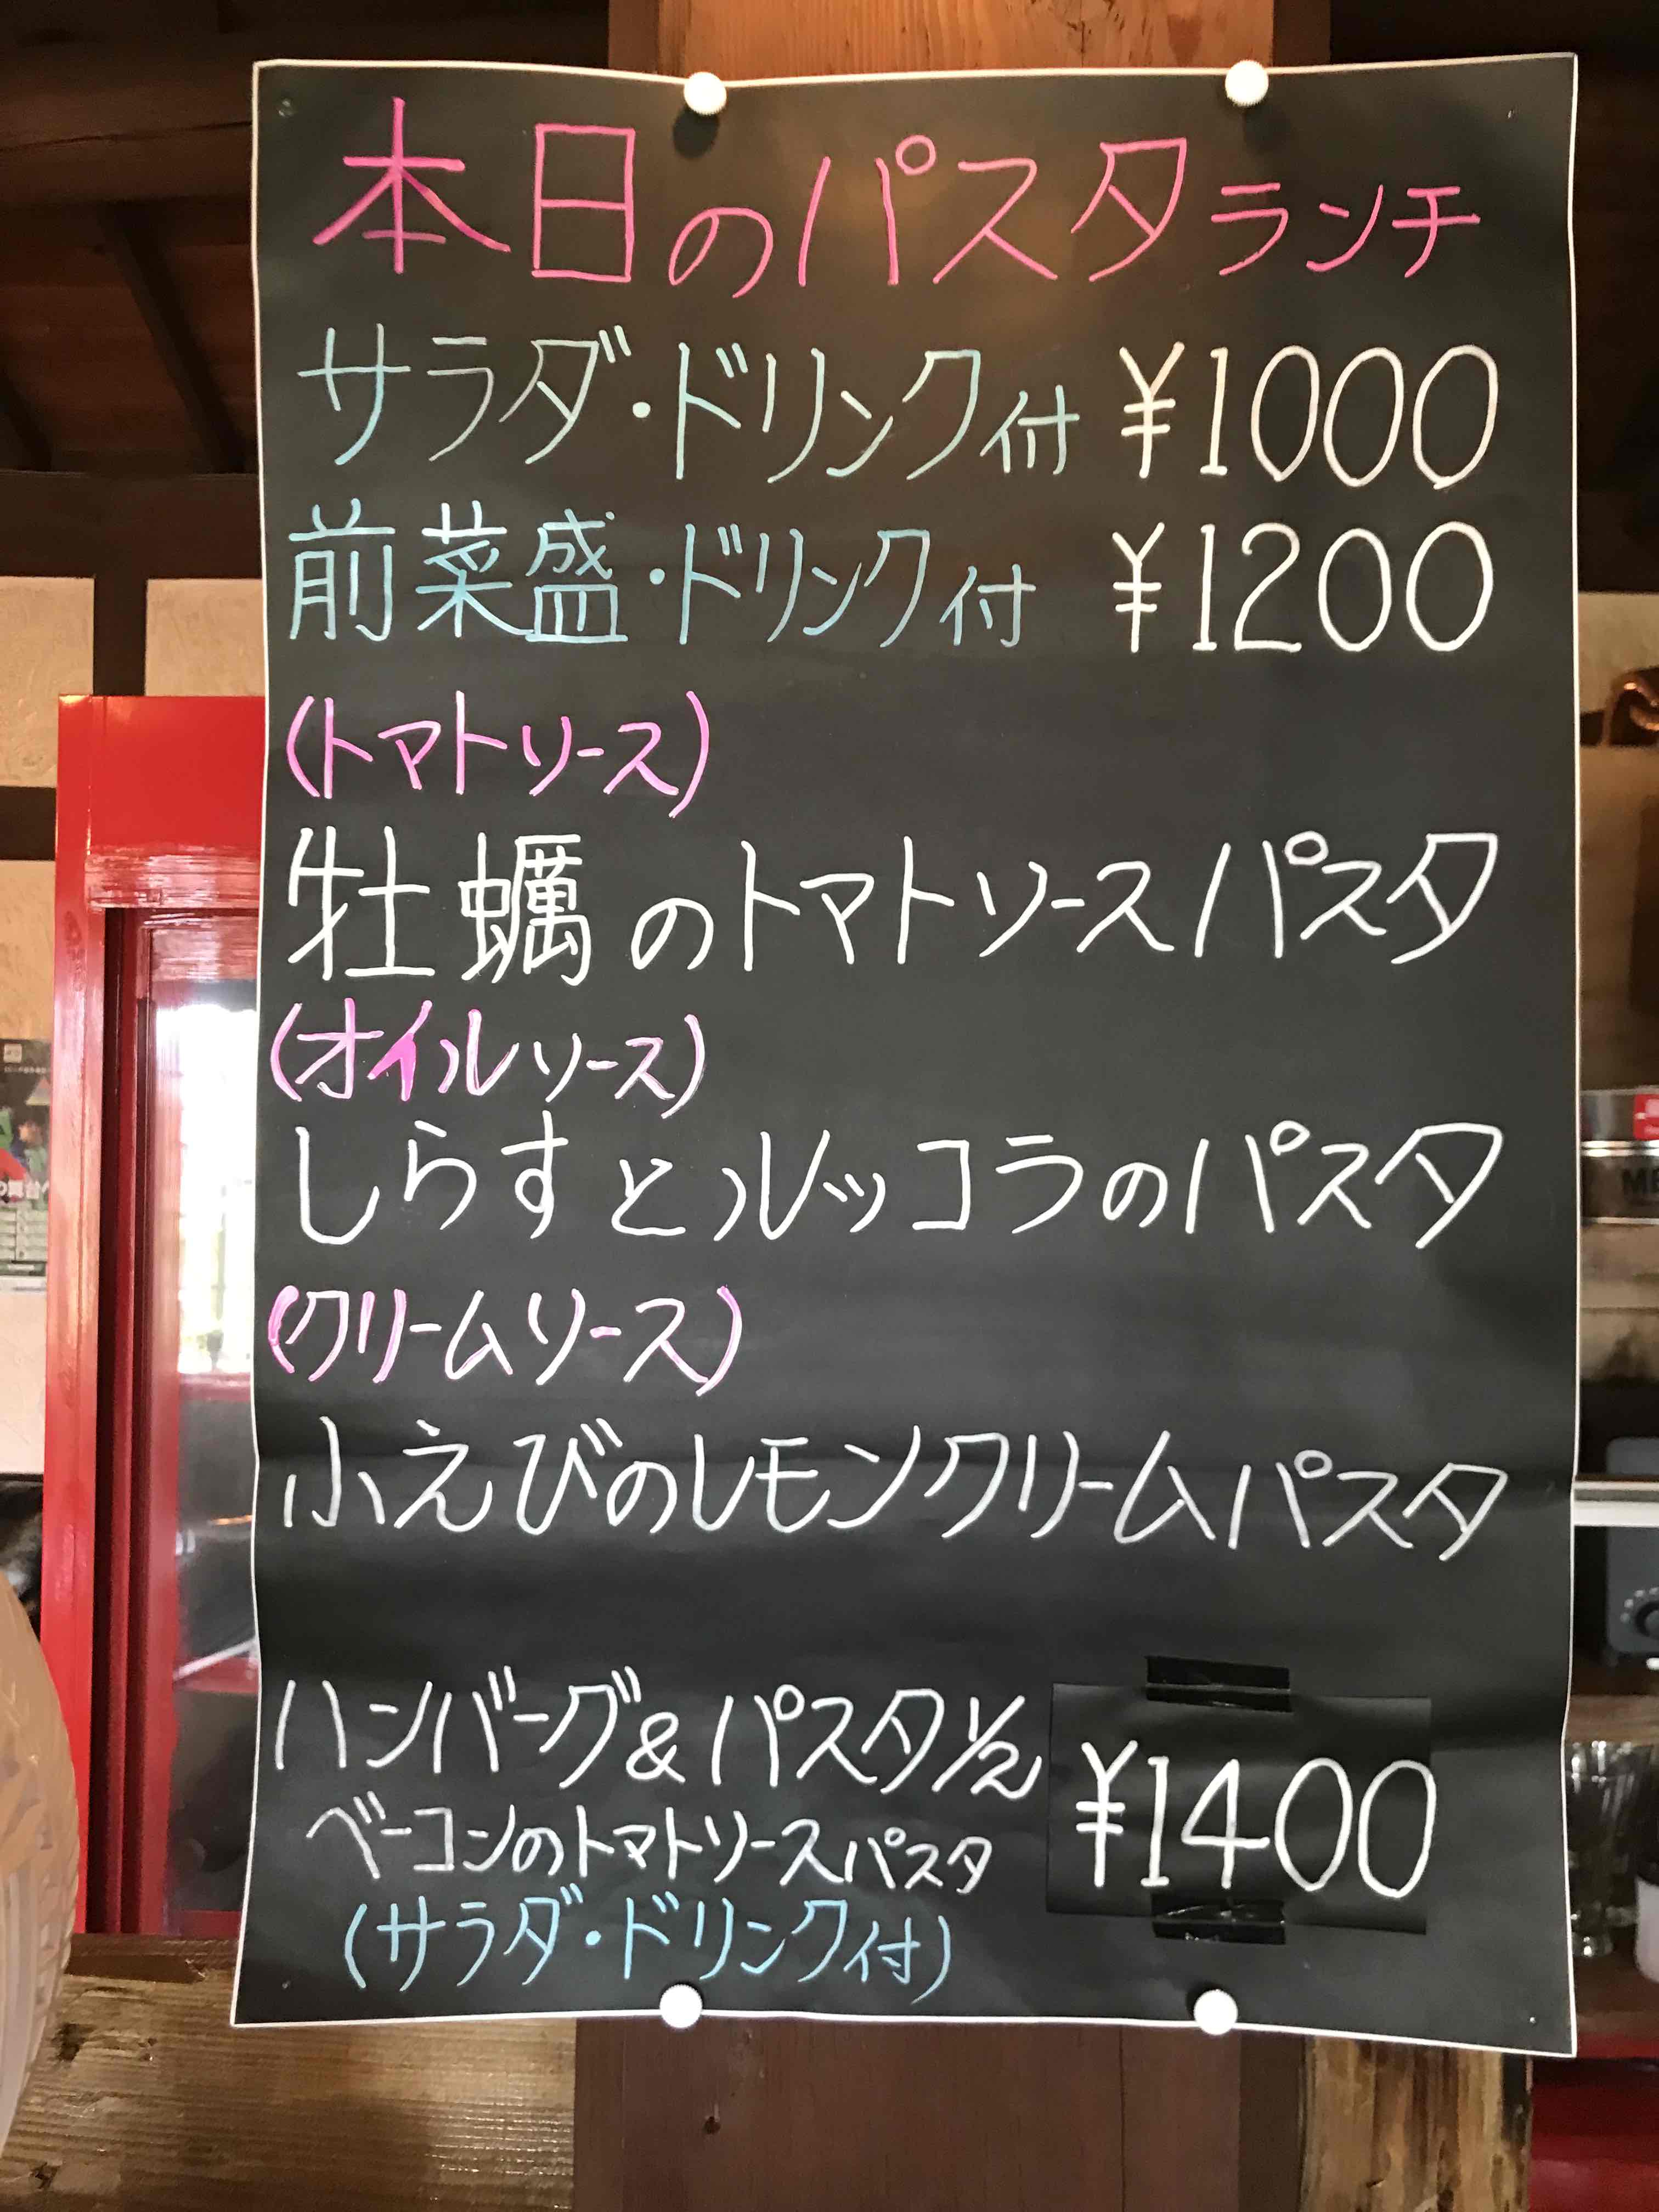 本日のパスタランチ
サラダ・ドリンク付 ¥1000
前菜盛・ドリンク付 ¥1200
(トマトソース)
牡蠣のトマトソースパスタ
(オイルソース)
しらすとルッコラのパスタ
(クリームソース)
小えびのレモンクリームパスタ
ハンバーグ&パスタ1/2 ¥1400
ベーコンのトマトソースパスタ
(サラダ・ドリンク付)